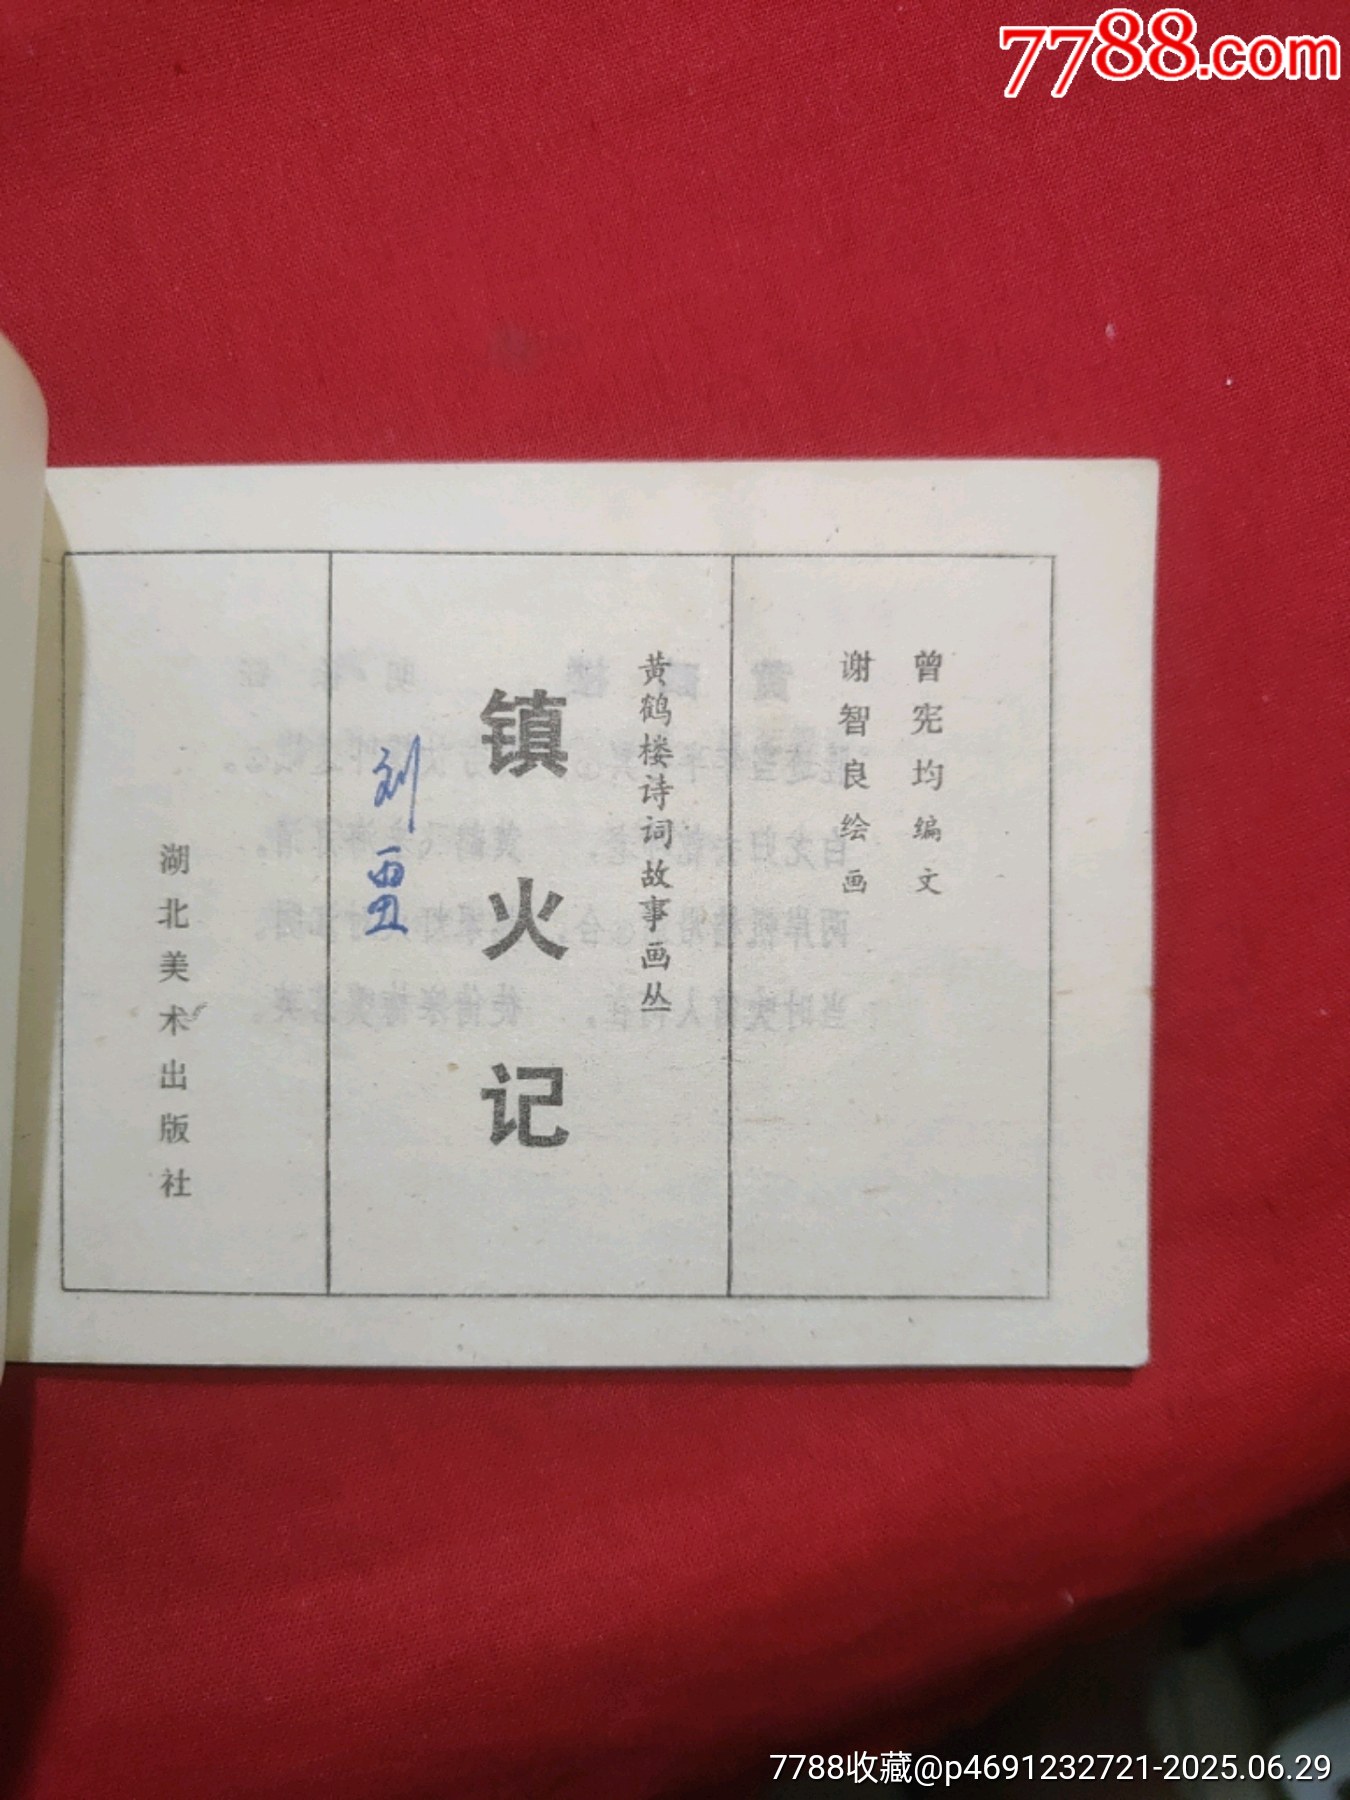 7788.com
曾宪均编文
谢智良绘画
黄鹤楼诗词故事画丛
镇火记
刘
湖北美术出版社
7788收藏@p4691232721-2025.06.29